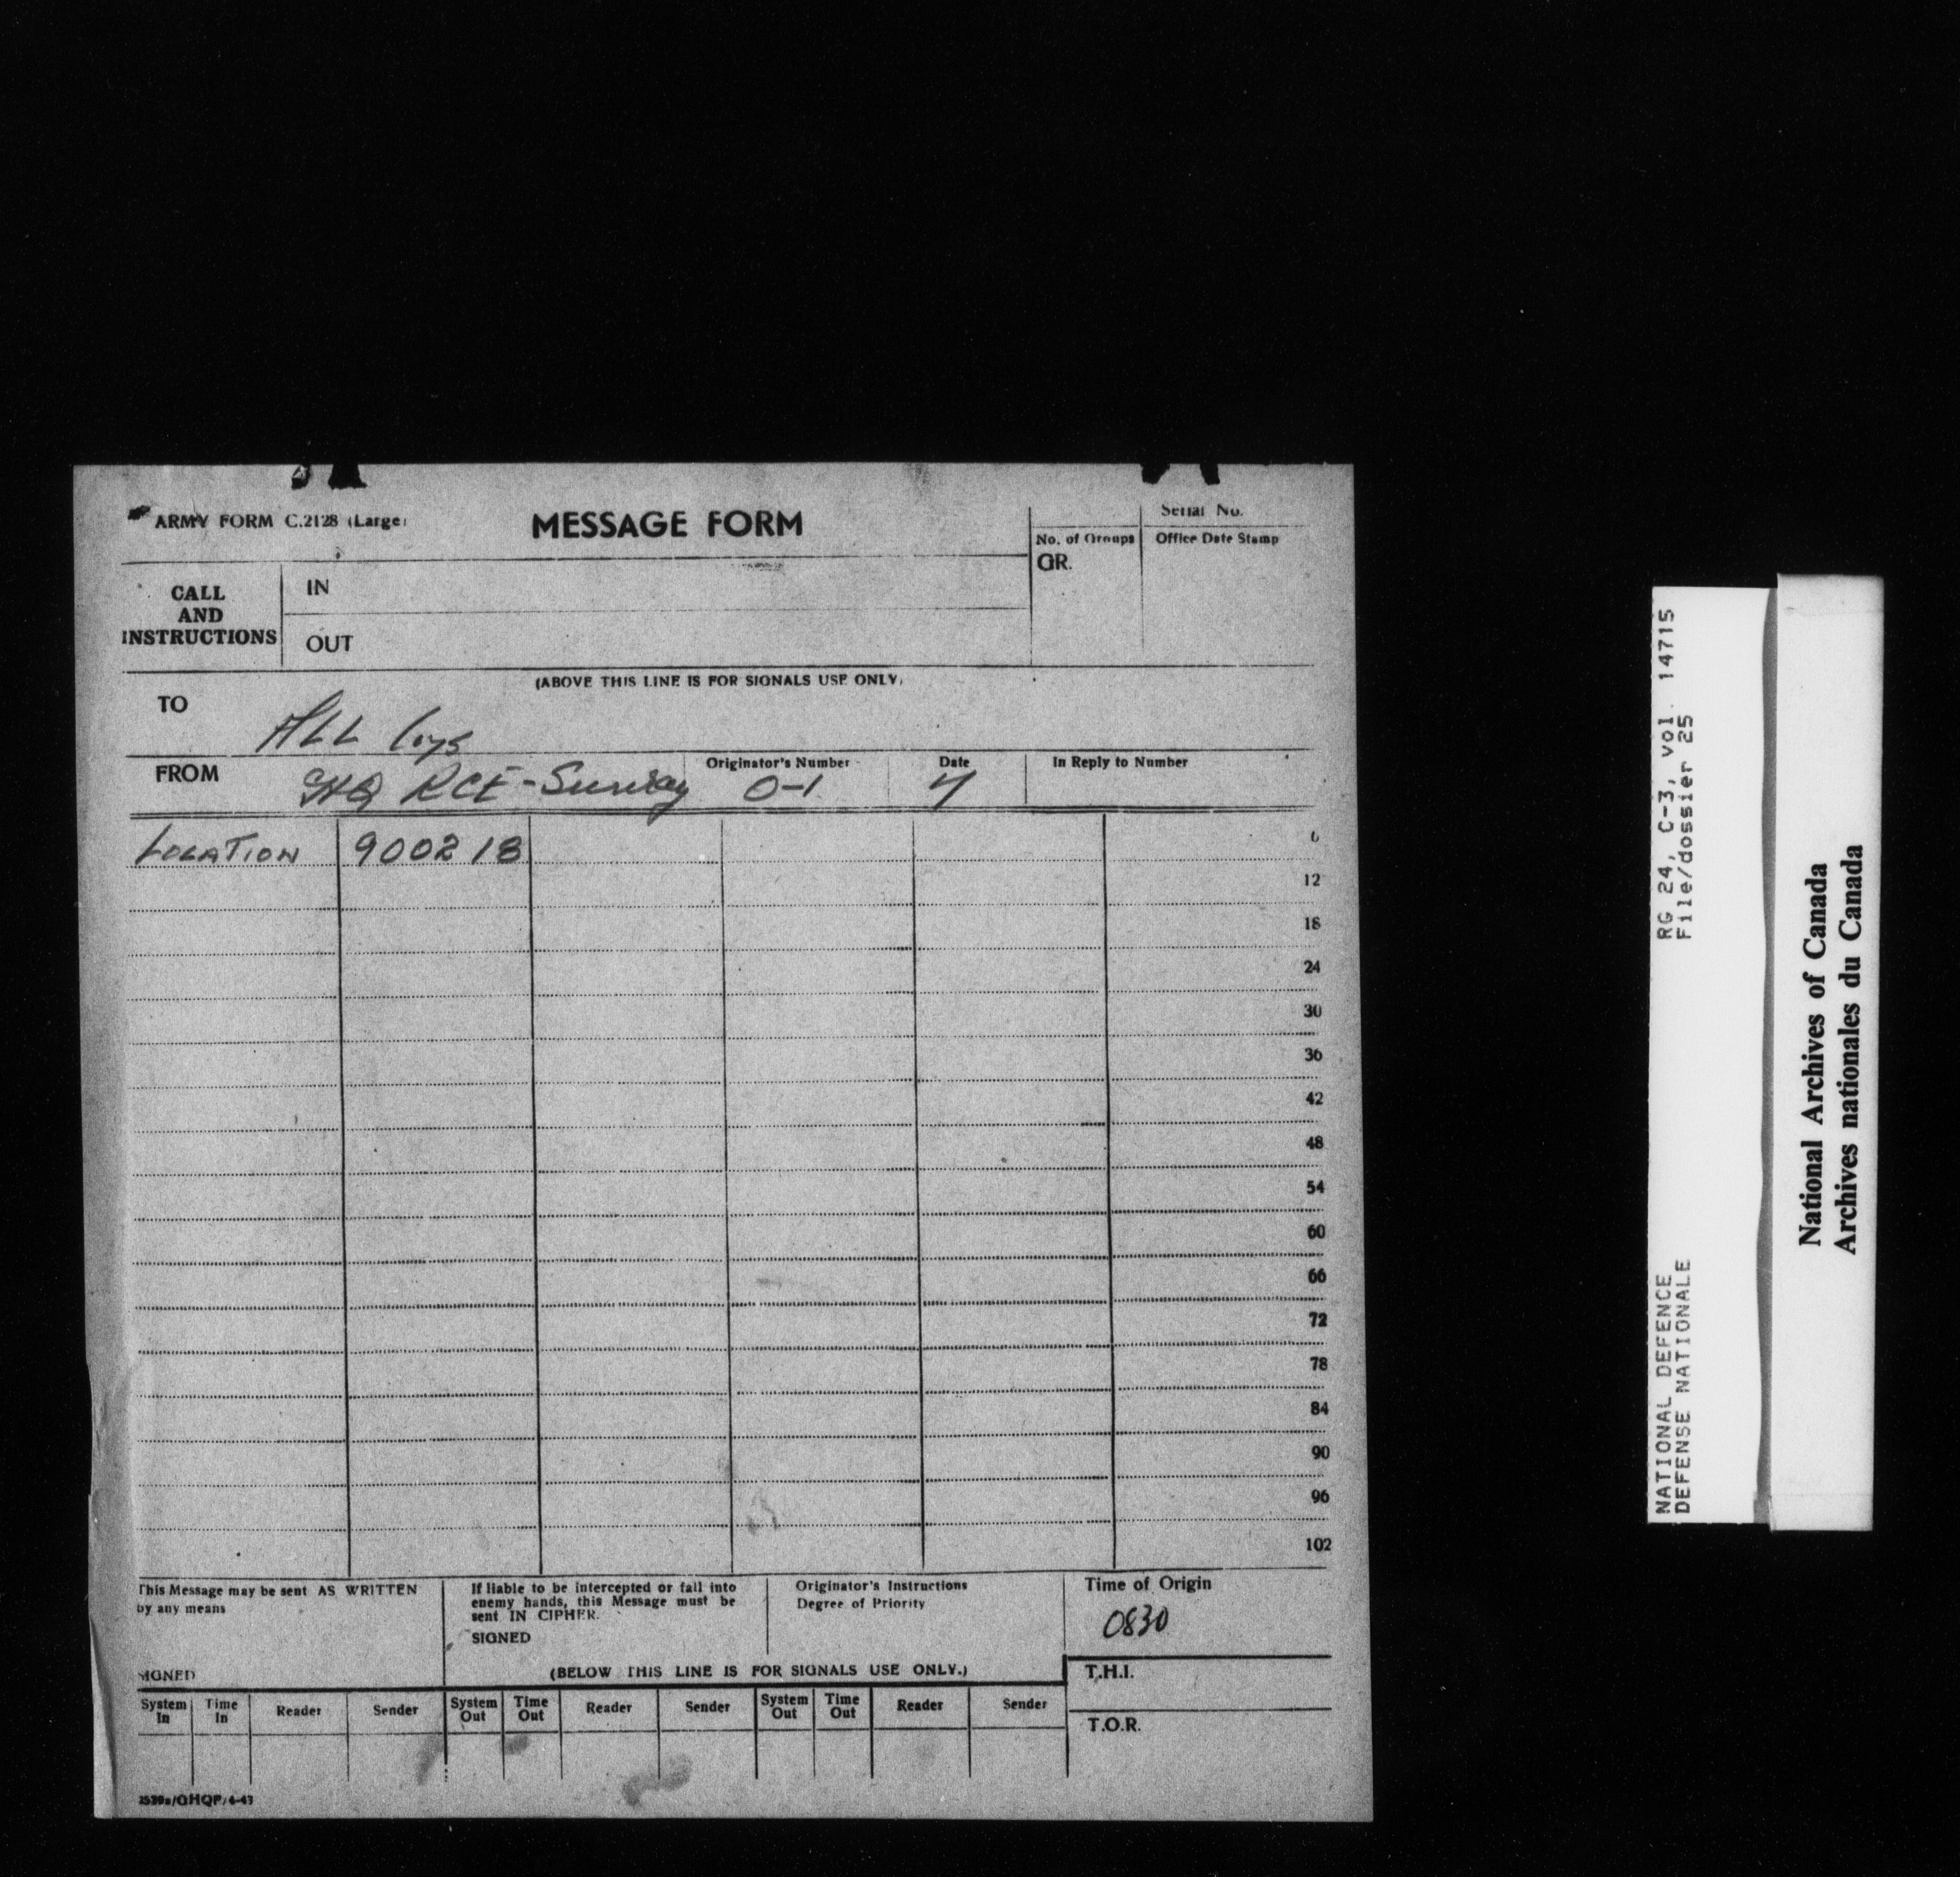 ARMY FORM C.2128 (Large)
MESSAGE FORM
Serial No.
No. of Groups
Office Date Stamp
GR.
CALL
AND
INSTRUCTIONS
IN
OUT
(ABOVE THIS LINE IS FOR SIGNALS USE ONLY)
TO
ALL Coys
FROM
RCE - Survey
Originator's Number
0-1
Date
In Reply to Number
LOCATION 900218
6
12
18
24
30
36
42
48
54
60
66
72
78
84
90
96
102
This Message may be sent AS WRITTEN
by any means
SIGNED
If liable to be intercepted or fall into
enemy hands, this Message must be
sent IN CIPHER.
SIGNED
Originator's Instructions
Degree of Priority
Time of Origin
0830
(BELOW THIS LINE IS FOR SIGNALS USE ONLY.)
T.H.I.
System In
Time In
Reader
Sender
System Out
Time Out
Reader
Sender
System Out
Time Out
Reader
Sender
T.O.R.
/GHQP/4-43
NATIONAL DEFENCE RG 24, C-3, vol. 14715
DEFENSE NATIONALE File/dossier 25
National Archives of Canada
Archives nationales du Canada